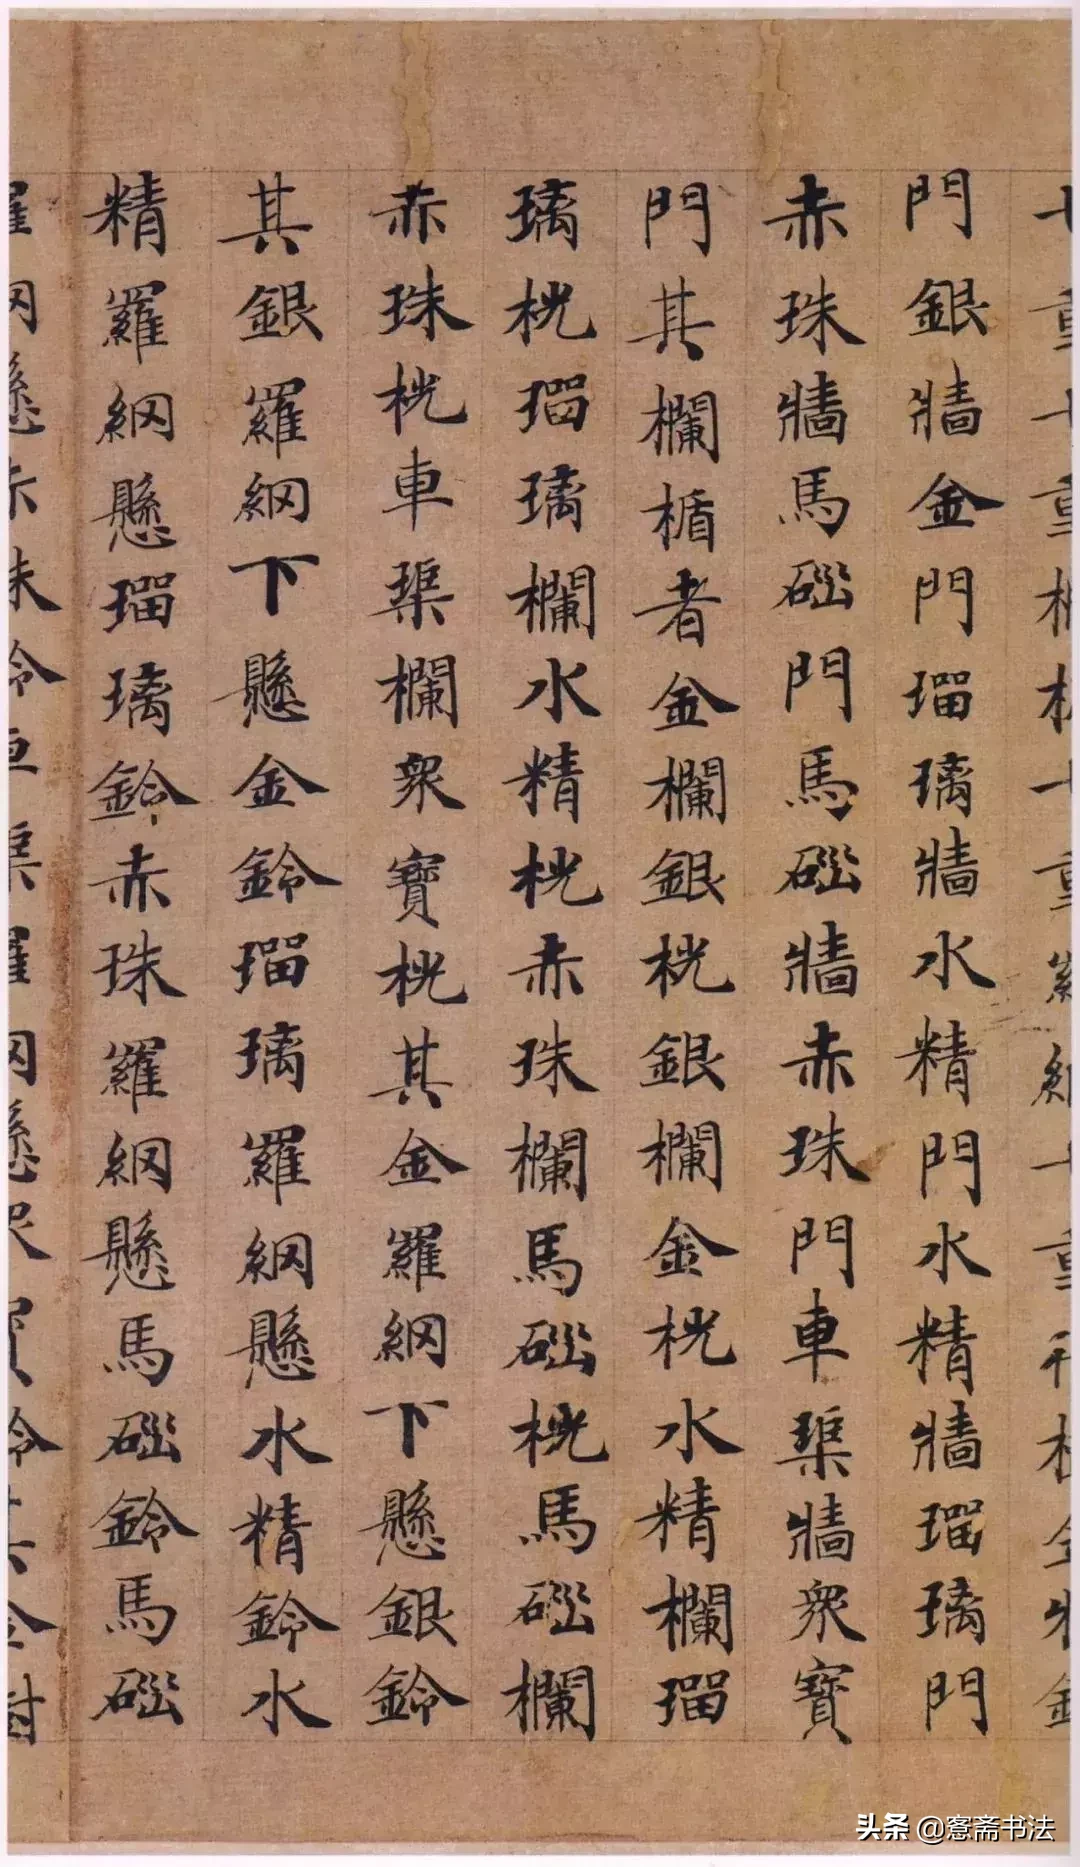 門銀牆金門瑠璃牆水精門水精牆瑠璃門
赤珠牆馬碯門馬碯牆赤珠門車渠牆衆寶
門其欄楯者金欄銀桄銀欄金桄水精欄瑠
璃桄瑠璃欄水精桄赤珠欄馬碯桄馬碯欄
赤珠桄車渠欄衆寶桄其金羅網下懸銀鈴
其銀羅網下懸金鈴瑠璃羅網懸水精鈴水
精羅網懸瑠璃鈴赤珠羅網懸馬碯鈴馬碯
头条 @愙斋书法